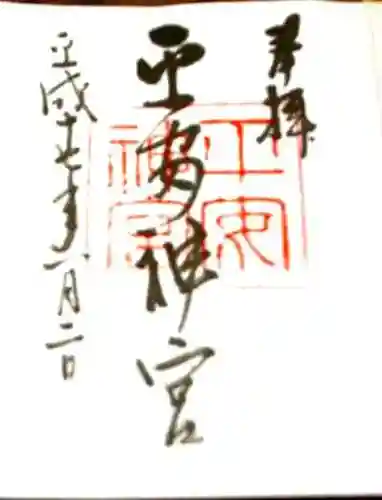 奉拝
平安神宮
平安神宮
平成十七年一月二日